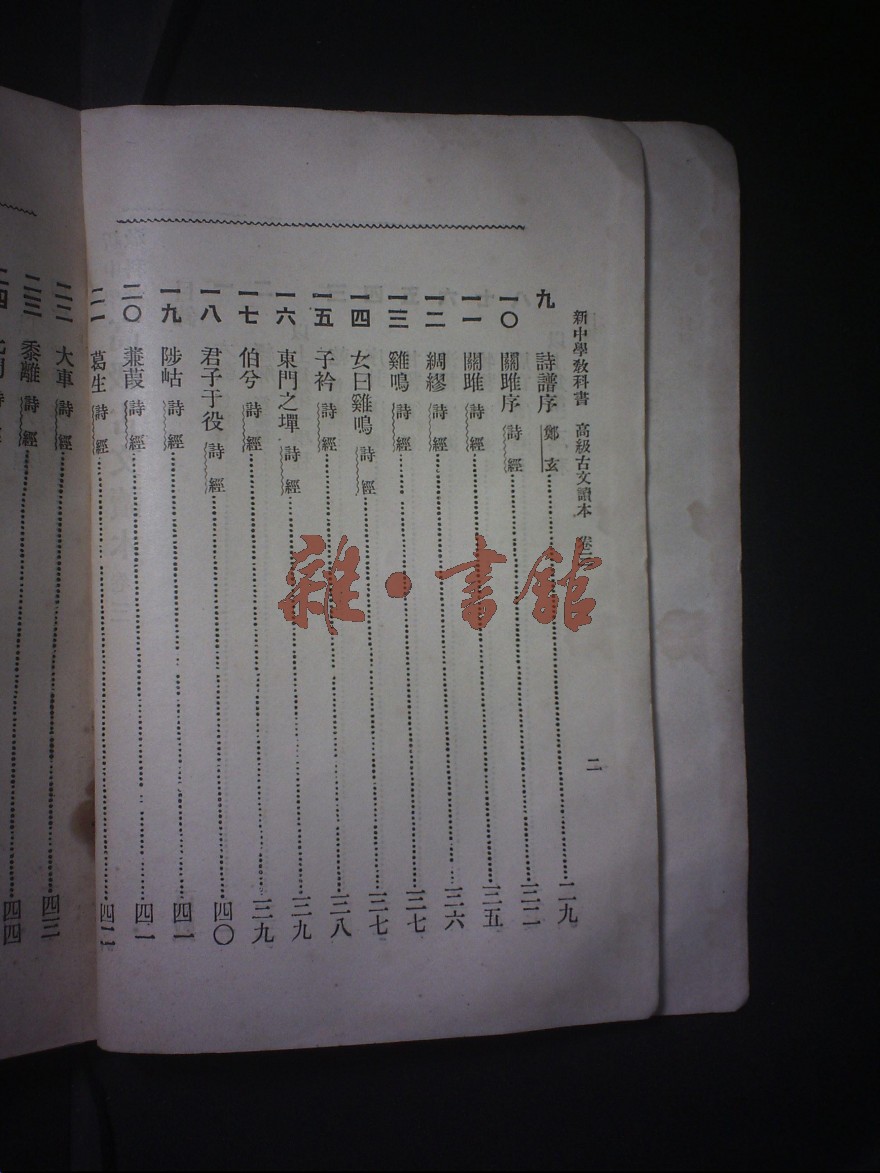 新中學教科書 高級古文讀本 卷三
二
九 詩譜序 鄭玄 二九
一〇 關雎序 詩經 三二
一一 關雎 詩經 三五
一二 綢繆 詩經 三六
一三 雞鳴 詩經 三七
一四 女曰雞鳴 詩經 三七
一五 子衿 詩經 三八
一六 東門之墠 詩經 三九
一七 伯兮 詩經 三九
一八 君子于役 詩經 四〇
一九 陟岵 詩經 四一
二〇 蒹葭 詩經 四一
二一 葛生 詩經 四二
二二 大車 詩經 四三
二三 黍離 詩經 四四
二四
雜·書館